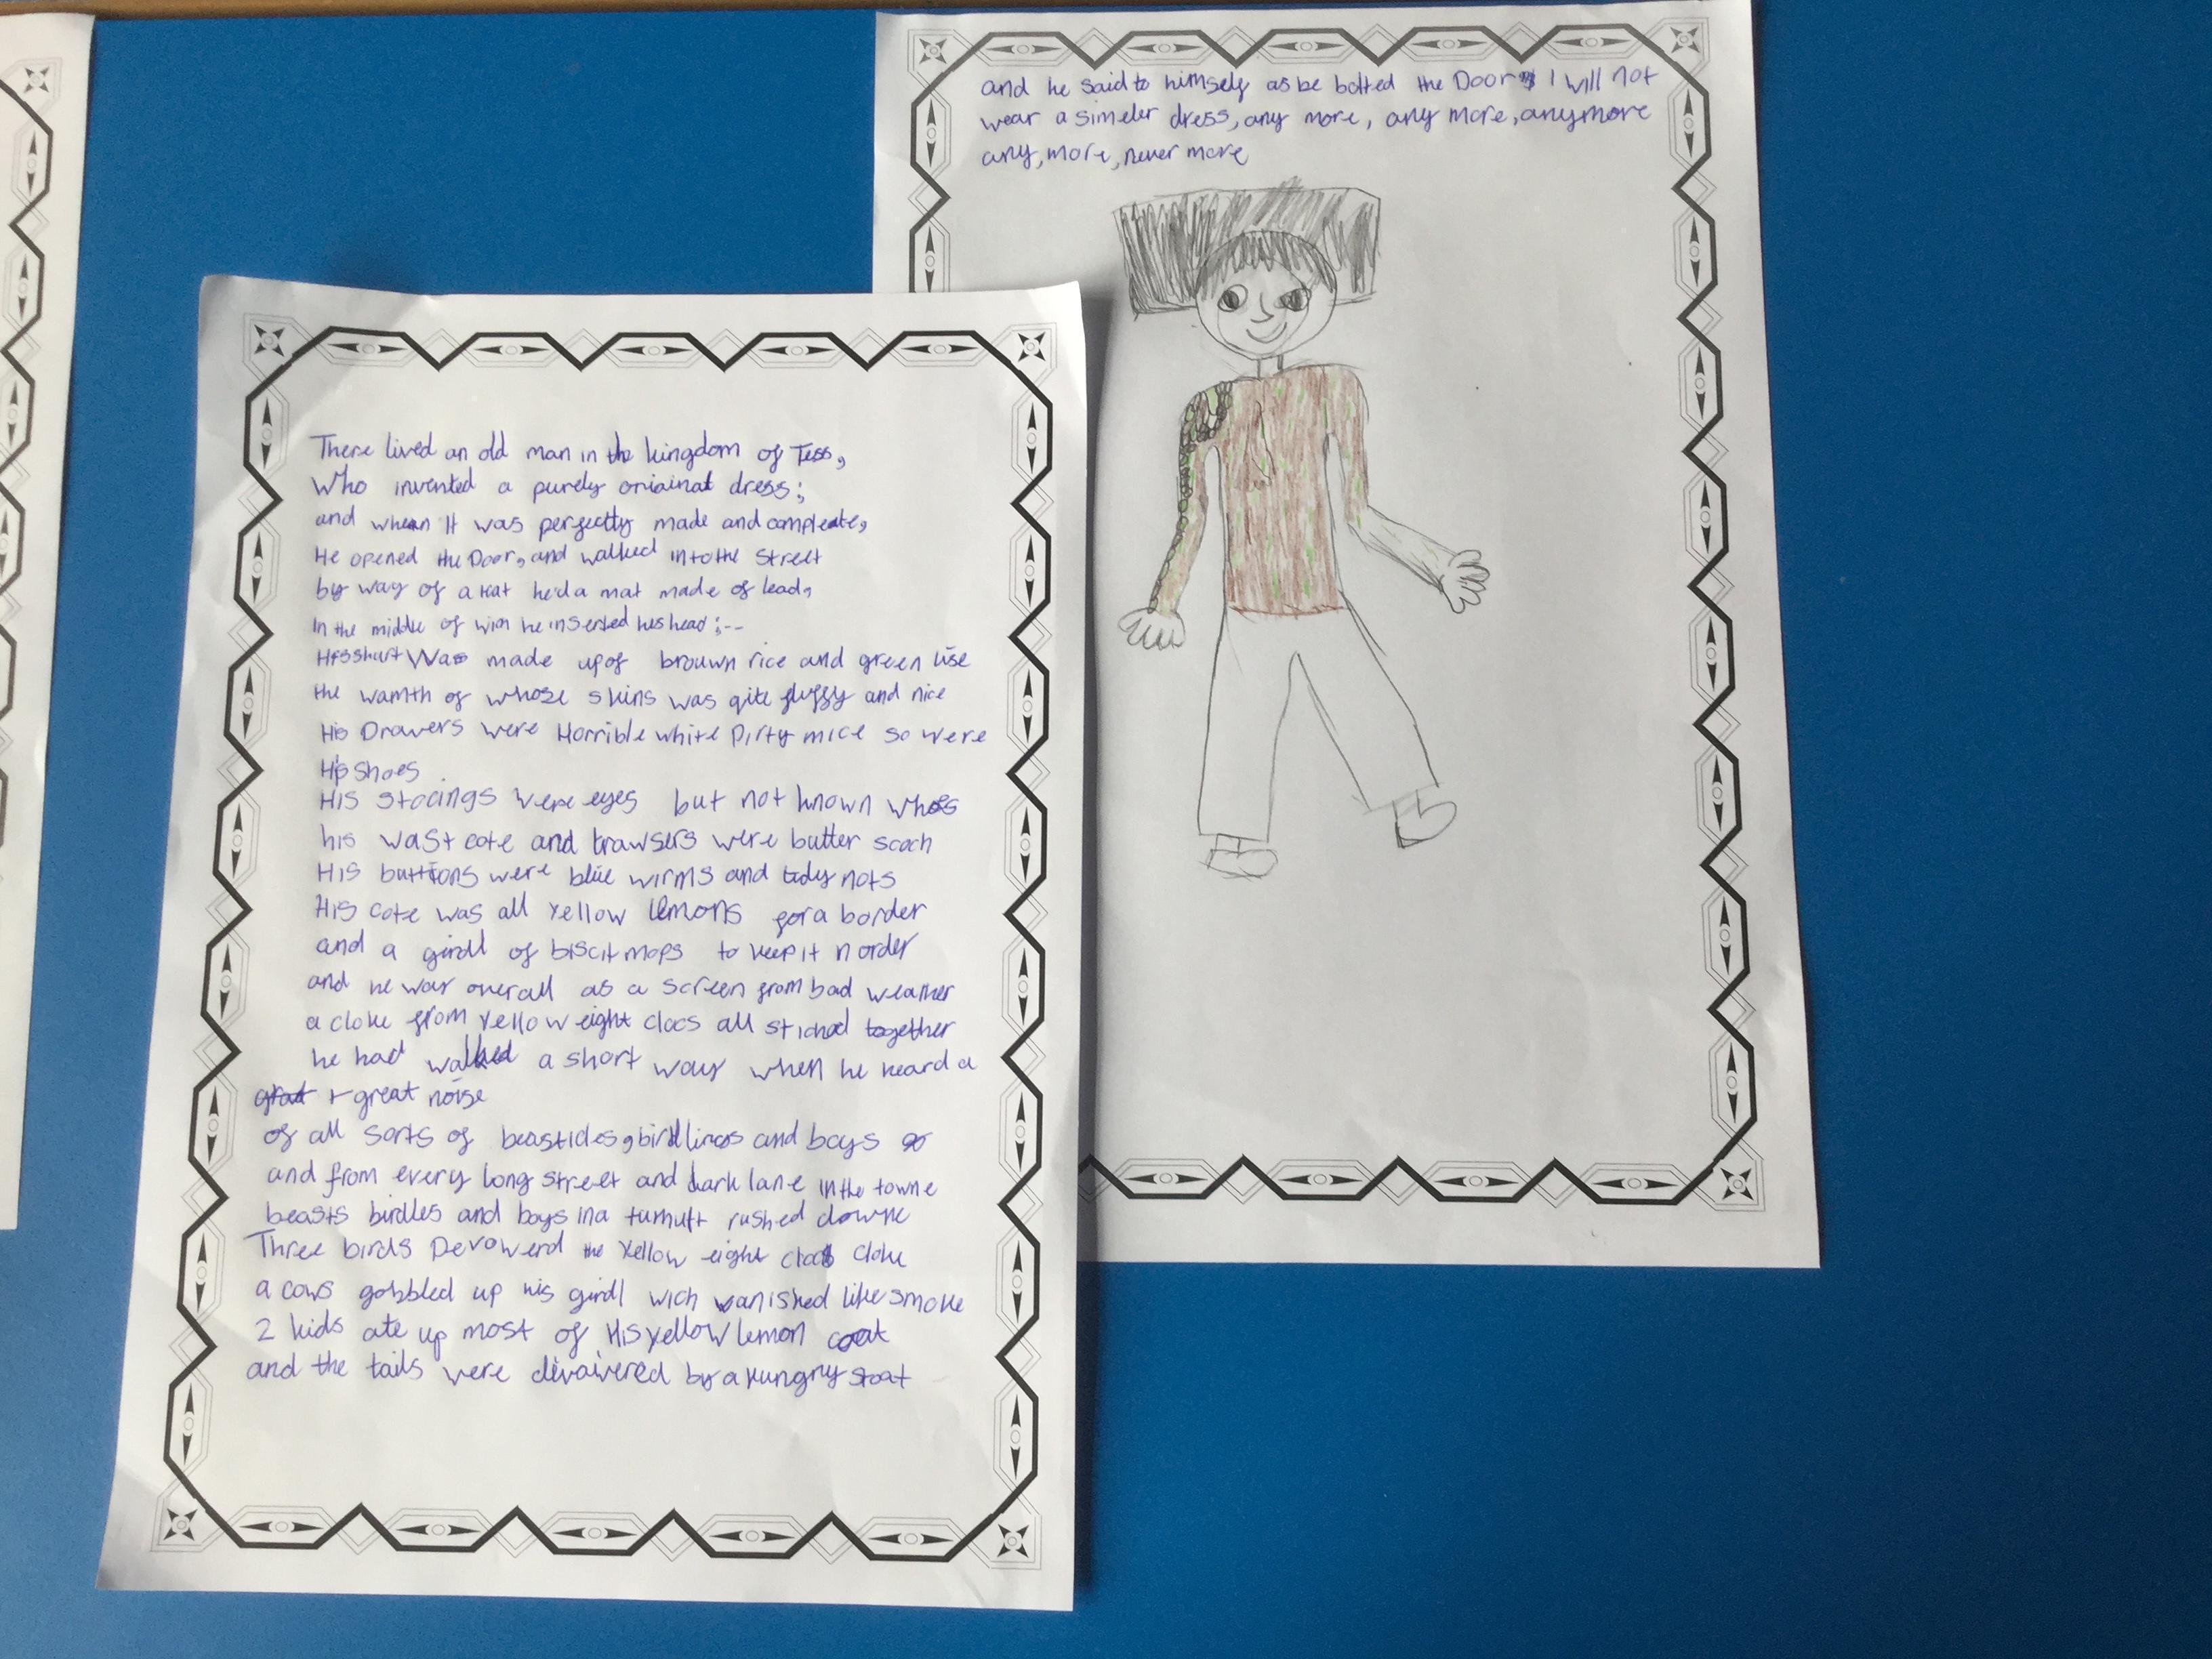 There lived an old man in the kingdom of Tess,
Who invented a purely oriainal dress;
and when It was perfectly made and compleate,
He opened the Door, and walked into the Street
by way of a Hat he'd a mat made of lead,
In the middle of wich he inserted his head;--
His shurt Was made up of brouwn rice and green lise
the wamth of whose skins was qite fluffy and nice
His Drawers were Horrible white Dirty mice so were
His shoes
His stocings were eyes but not known whos
his wast cote and trawsers were butter scoch
His buttions were blue wirms and tidy nots
His cote was all Yellow lemons for a border
and a girdl of biscit mops to keep it n order
and he war overall as a screen from bad weather
a cloke from Yellow eight clocs all stichad together
he had walked a short way when he heard a
great noise
of all sorts of beasticles, birdlincs and boys
and from every long street and dark lane in the towne
beasts birdles and boys in a tumult rushed downe
Three birds Devowerd the Yellow eight clocs cloke
a cows gobbled up his girdl wich vanished like smoke
2 kids ate up most of His yellow lemon coat
and the tails were divaivered by a hungry stoat
and he said to himself as he bolted the Door I will not
wear a simeler dress, any more, any more, anymore
any, more, never more